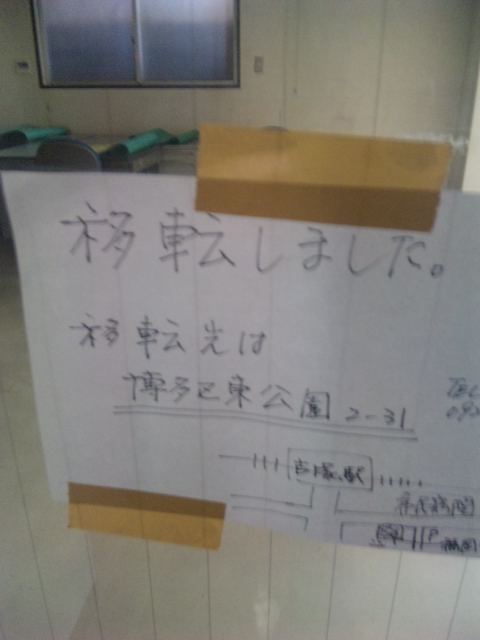 移転しました。
移転先は
博多区東公園 2-31
TEL
092
吉塚駅